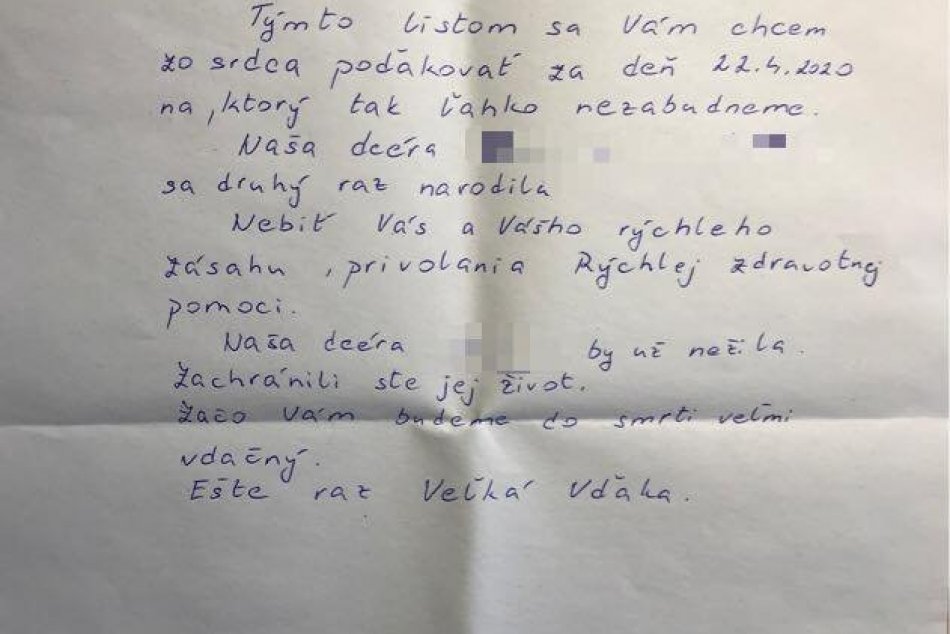 Týmto listom sa Vám chcem
zo srdca poďakovať za deň 22.4.2020
na, ktorý tak ľahko nezabudneme.
Naša dcéra
sa druhý raz narodila
Nebiť Vás a Vášho rýchleho
zásahu , privolania Rýchlej zdravotnej
pomoci.
Naša dcéra by už nežila.
Zachránili ste jej život.
Začo Vám budeme do smrti veľmi
vdačný.
Ešte raz Veľká Vďaka.